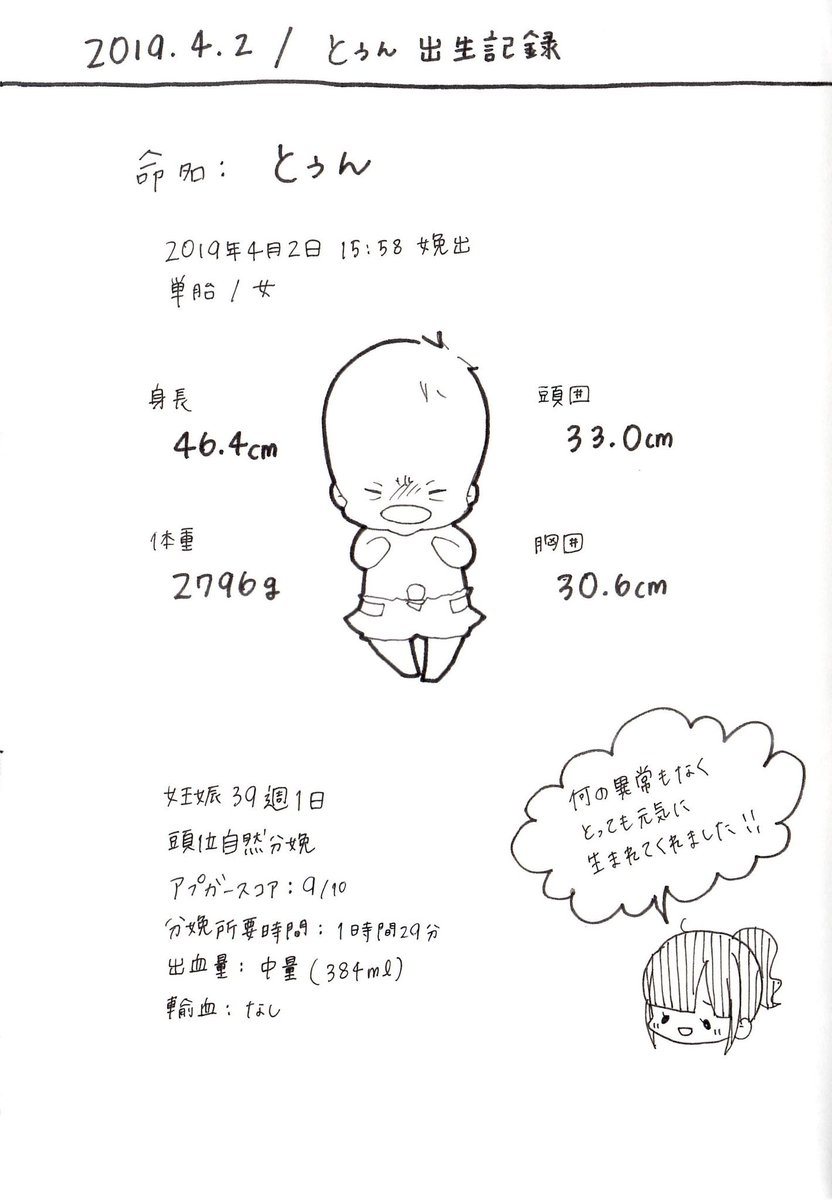 2019.4.2 / とぅん 出生記録
命名: とぅん
2019年4月2日 15:58 娩出
単胎 / 女
身長
46.4cm
頭囲
33.0cm
体重
2796g
胸囲
30.6cm
妊娠39週1日
頭位自然分娩
アプガースコア: 9/10
分娩所要時間: 1時間29分
出血量: 中量(384ml)
輸血: なし
何の異常もなく
とっても元気に
生まれてくれました!!